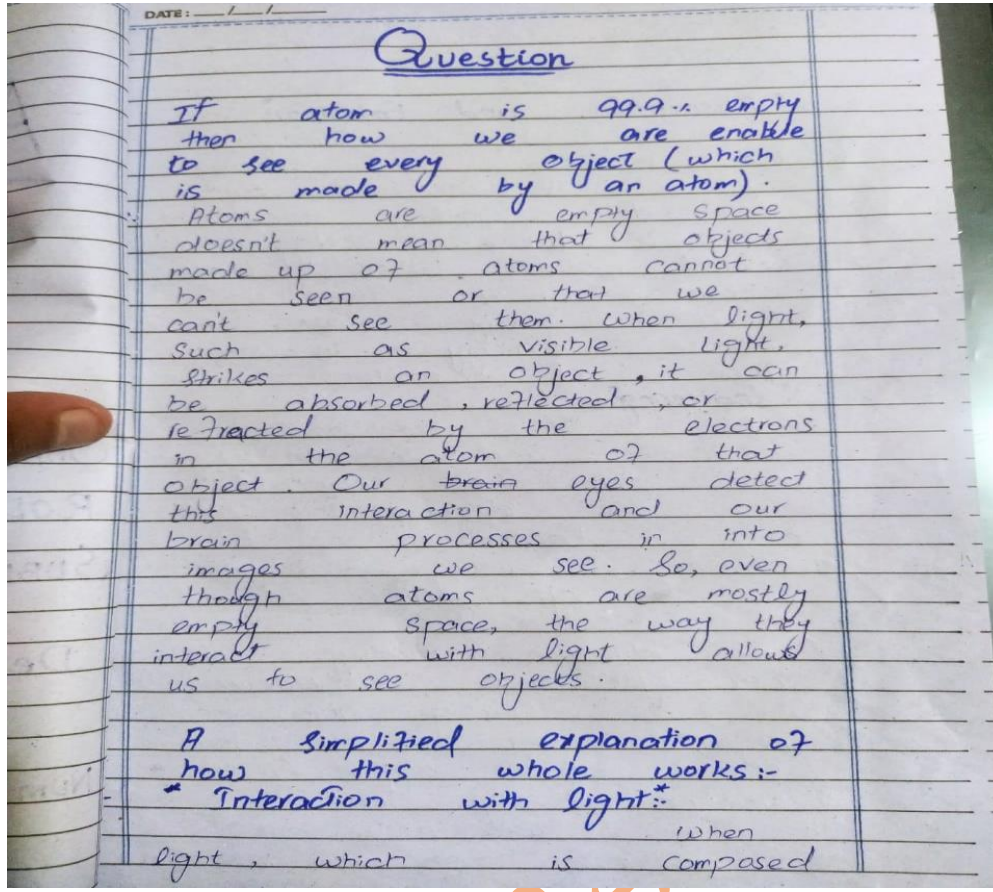 DATE: __/__/__
Question
If atom is 99.9.% empty
then how we are enable
to see every object (which
is made by an atom).
Atoms are empty space
doesn't mean that objects
made up of atoms cannot
be seen or that we
can't see them. When light,
Such as visible light,
strikes an object, it can
be absorbed, reflected, or
refracted by the electrons
in the atom of that
object. Our brain eyes detect
this interaction and our
brain processes in into
images we see. So, even
though atoms are mostly
empty space, the way they
interact with light allows
us to see objects.
A simplified explanation of
how this whole works:-
* Interaction with light:*
When
light, which is composed